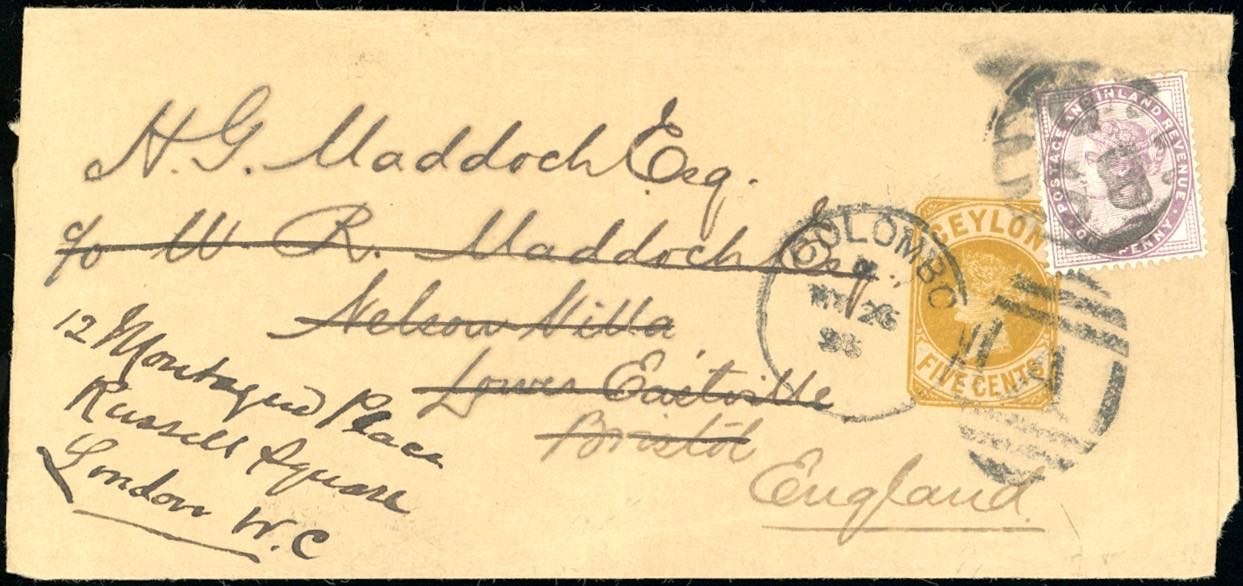 H. G. Maddoch Esq.
c/o W. R. Maddoch Esq.,
Nelson Villa
Lower Eastville
Bristol
England
12 Montague Place
Russell Square
London W.C
COLOMBO
CEYLON
FIVE CENTS
POSTAGE AND INLAND REVENUE
ONE PENNY